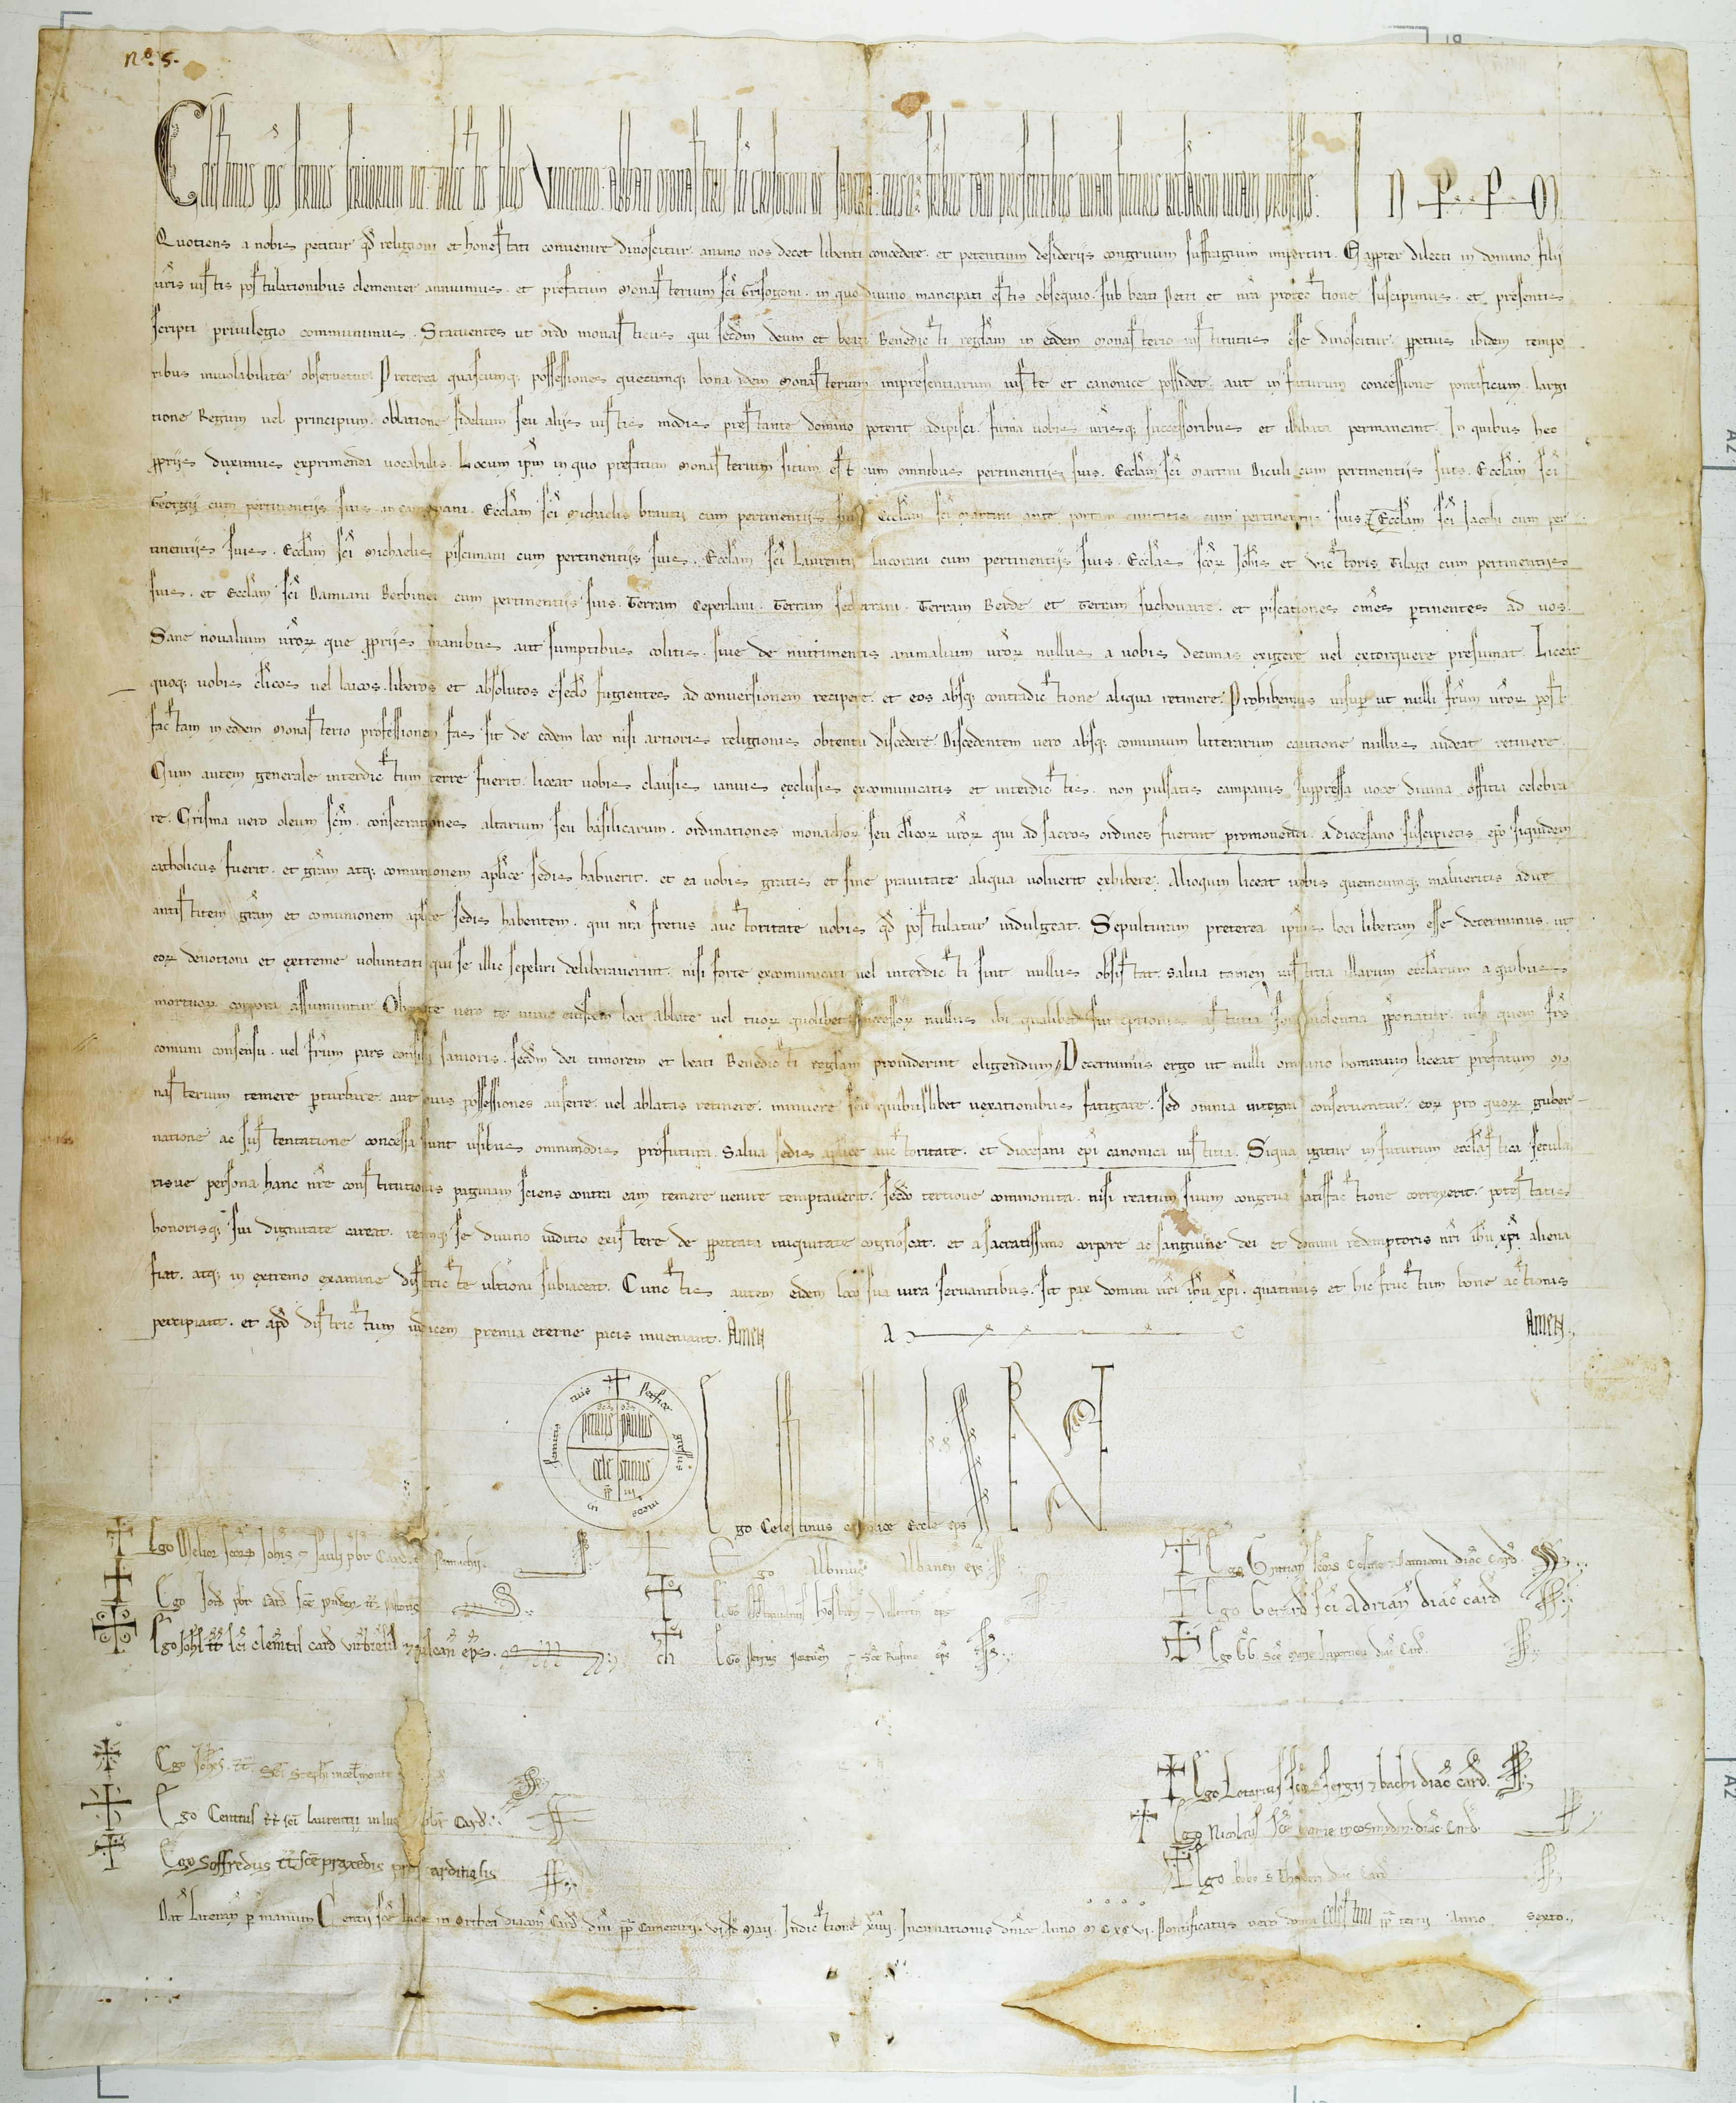 Nº. 5.
Celestinus ep̄s seruus seruorum dei. dilectis filiis Vincentio. abbati monasterii sc̄i Crisogoni de Iadera. eiusq; fr̄ibus tam presentibus quam futuris regularem uitam professis. IN PPM
Quotiens a nobis petitur qd̄ religioni et honestati conuenire dinoscitur. animo nos decet libenti concedere. et petentium desideriis congruum suffragium impertiri. Eapropter dilecti in domino filii
ur̄is iustis postulationibus clementer annuimus. et prefatum Monasterium sc̄i Grisogoni. in quo diuino mancipati estis obsequio. sub beati Petri et nr̄a protectione suscipimus. et presentis
scripti priuilegio communimus. Statuentes ut ordo monasticus qui secd̄m deum et beati Benedicti regl̄am in eodem Monasterio institutus esse dinoscitur. ꝑpetuis ibidem tempo
ribus inuiolabiliter obseruetur. Preterea quascumq; possessiones quecumq; bona idem Monasterium inpresentiarum iuste et canonice possidet. aut in futurum concessione pontificum. largi
tione Regum uel principum. oblatione fidelium seu aliis iustis modis prestante domino poterit adipisci. firma uobis ur̄isq; successoribus et illibata permaneant. In quibus hec
ꝓpriis duximus exprimenda uocabulis. Locum ip̄m in quo prefatum Monasterium situm est cum omnibus pertinentiis suis. Eccl̄am sc̄i Martini Diculi cum pertinentiis suis. Eccl̄am sc̄i
Georgii cum pertinentiis suis Eccl̄am sc̄i Michaelis brauii cum pertinentiis suis Eccl̄am sc̄i Martini ante portam ciuitatis cum pertinentiis suis. Eccl̄am sc̄i Iacobi cum per
tinentiis suis. Eccl̄am sc̄i Michaelis pismani cum pertinentiis suis. Eccl̄am sc̄i Laurentii lucorani cum pertinentiis suis. Eccl̄as sc̄oꝝ Ioh̄is et Victoris Tilagi cum pertinentiis
suis. et Eccl̄am sc̄i Damiani Berbinei cum pertinentiis suis. Terram Ceperlani. Terram Terram Berde et terram suchouare. et piscationes om̄es ꝑtinentes ad uos.
Sane noualium ur̄oꝝ que ꝓpriis manibus aut sumptibus colitis. siue de nutrimentis animalium ur̄oꝝ nullus a uobis decimas exigere uel extorquere presumat. Liceat
quoq; uobis cl̄icos uel laicos. liberos et absolutos e sec̄lo fugientes ad conuersionem recipere. et eos absq; contradictione aliqua retinere. Prohibemus insuꝑ ut nulli fr̄um ur̄oꝝ post
factam in eodem Monasterio professionem fas sit de eodem loco nisi artioris religionis obtentu discedere. Discedentem uero absq; comunium litterarum cautione nullus audeat retinere.
Cum autem generale interdictum terre fuerit. liceat uobis clausis ianuis exclusis excomunicatis et interdictis. non pulsatis campanis suppressa uoce diuina offitia celebra
re. Crisma uero oleum sc̄m. consecrationes altarium seu basilicarum. ordinationes monachoꝝ seu cl̄icoꝝ ur̄oꝝ qui ad sacros ordines fuerint promouendi. a diocesano suscipietis ep̄o siquidem
catholicus fuerit. et gr̄am atq; comunionem apl̄ice sedis habuerit. et ea uobis gratis et sine prauitate aliqua uoluerit exhibere. Alioquin liceat uobis quemcumq; malueritis adire
antistitem gr̄am et comunionem apl̄ice sedis habentem. qui nr̄a fretus auctoritate uobis qd̄ postulatur indulgeat. Sepulturam preterea ipsius loci liberam esse decernimus. ut
eoꝝ deuotioni et extreme uoluntati qui se illic sepeliri deliberauerint. nisi forte excomunicati uel interdicti sint nullus obsistat. salua tamen iustitia illarum eccl̄arum a quibus
mortuoꝝ corpora assumuntur Obeunte uero te nunc eiusdem loci Abbate uel tuoꝝ quolibet successoꝝ nullus ibi qualibet surreptionis astutia seu uiolentia ꝓponatur. nisi quem fr̄s
comuni consensu. uel fr̄um pars consilii sanioris. secd̄m dei timorem et beati Benedicti regl̄am prouiderint eligendum. Decernimus ergo ut nulli omnino hominum liceat prefatum Mo
nasterium temere ꝑturbare. aut eius possessiones auferre. uel ablatas retinere. minuere seu quibuslibet uexationibus fatigare. sed omnia integra conseruentur. eoꝝ pro quoꝝ guber
natione ac sustentatione concessa sunt usibus omnimodis profutura. salua sedis apl̄ice auctoritate. et diocesani ep̄i canonica iustitia. Siqua igitur in futurum eccl̄astica secula
risue persona hanc nr̄e constitutionis paginam sciens contra eam temere uenire temptauerit. secd̄o tertioue commonita. nisi reatum suum congrua satisfactione correxerit. potestatis
honorisq; sui dignitate careat. reamq; se diuino iuditio existere de ꝑpetrata iniquitate cognoscat. et a sacratissimo corpore ac sanguine dei et domini redemptoris nr̄i ih̄u xp̄i aliena
fiat. atq; in extremo examine districte ultioni subiaceat. Cunctis autem eidem loco sua iura seruantibus. sit pax domini nr̄i ih̄u xp̄i. quatinus et hic fructum bone actionis
percipiant. et apd̄ districtum iudicem premia eterne pacis inueniant. Amen A Amen.
perfice gressus meos in semitis tuis
sc̄s sc̄s
petrus paulus
cele stinus
pp̄ iii
Ego Celestinus catholice Eccl̄e ep̄s
Ego Melior sc̄oꝝ Ioh̄is et Pauli pb̄r Card̄ tt̄ Pamachii.
Ego Albinus Albanen̄ ep̄s
Ego Gratian̄ sc̄oꝝ Cosme et Damiani diac̄ card̄
Ego Iord̄ pb̄r Card̄ sc̄e Puden̄ tt̄ pastoris
Ego Octauianus hostien̄ et Velletren̄ ep̄s
Ego Gerard̄ sc̄i Adriani diac̄ card̄
Ego Ioh̄s tt̄ sc̄i clem̄tis card̄ Ep̄s.
Ego Petrus portuen̄ et sc̄e Rufine ep̄s
Ego Gḡ sc̄e Marie Inporticu diac̄ Card̄.
Ego Ioh̄es. tt̄. Sc̄i Steph̄i incel̄imonte
Ego Lotarius sc̄oꝝ sergii et bachi diac̄ card̄.
Ego Centius tt̄ sc̄i laurentii in luc pb̄r Card̄.
Ego Nicolaus sc̄e Marie incosmydin. diac̄ Card̄.
Ego Soffredus tt̄ sc̄e praxedis pb̄r cardinalis
Ego bobo s̄ Theodori diac̄ Card̄
Dat̄ Lateran̄ ꝑ manum Centii sc̄e Lucie in Orthea diacon̄ Card̄ dn̄i pp̄ Camerarii. Maii. Indictione xiiii. Incarnationis dn̄ice Anno M C XC VI. Pontificatus uero domni Celestini pp̄ tertii Anno sexto.